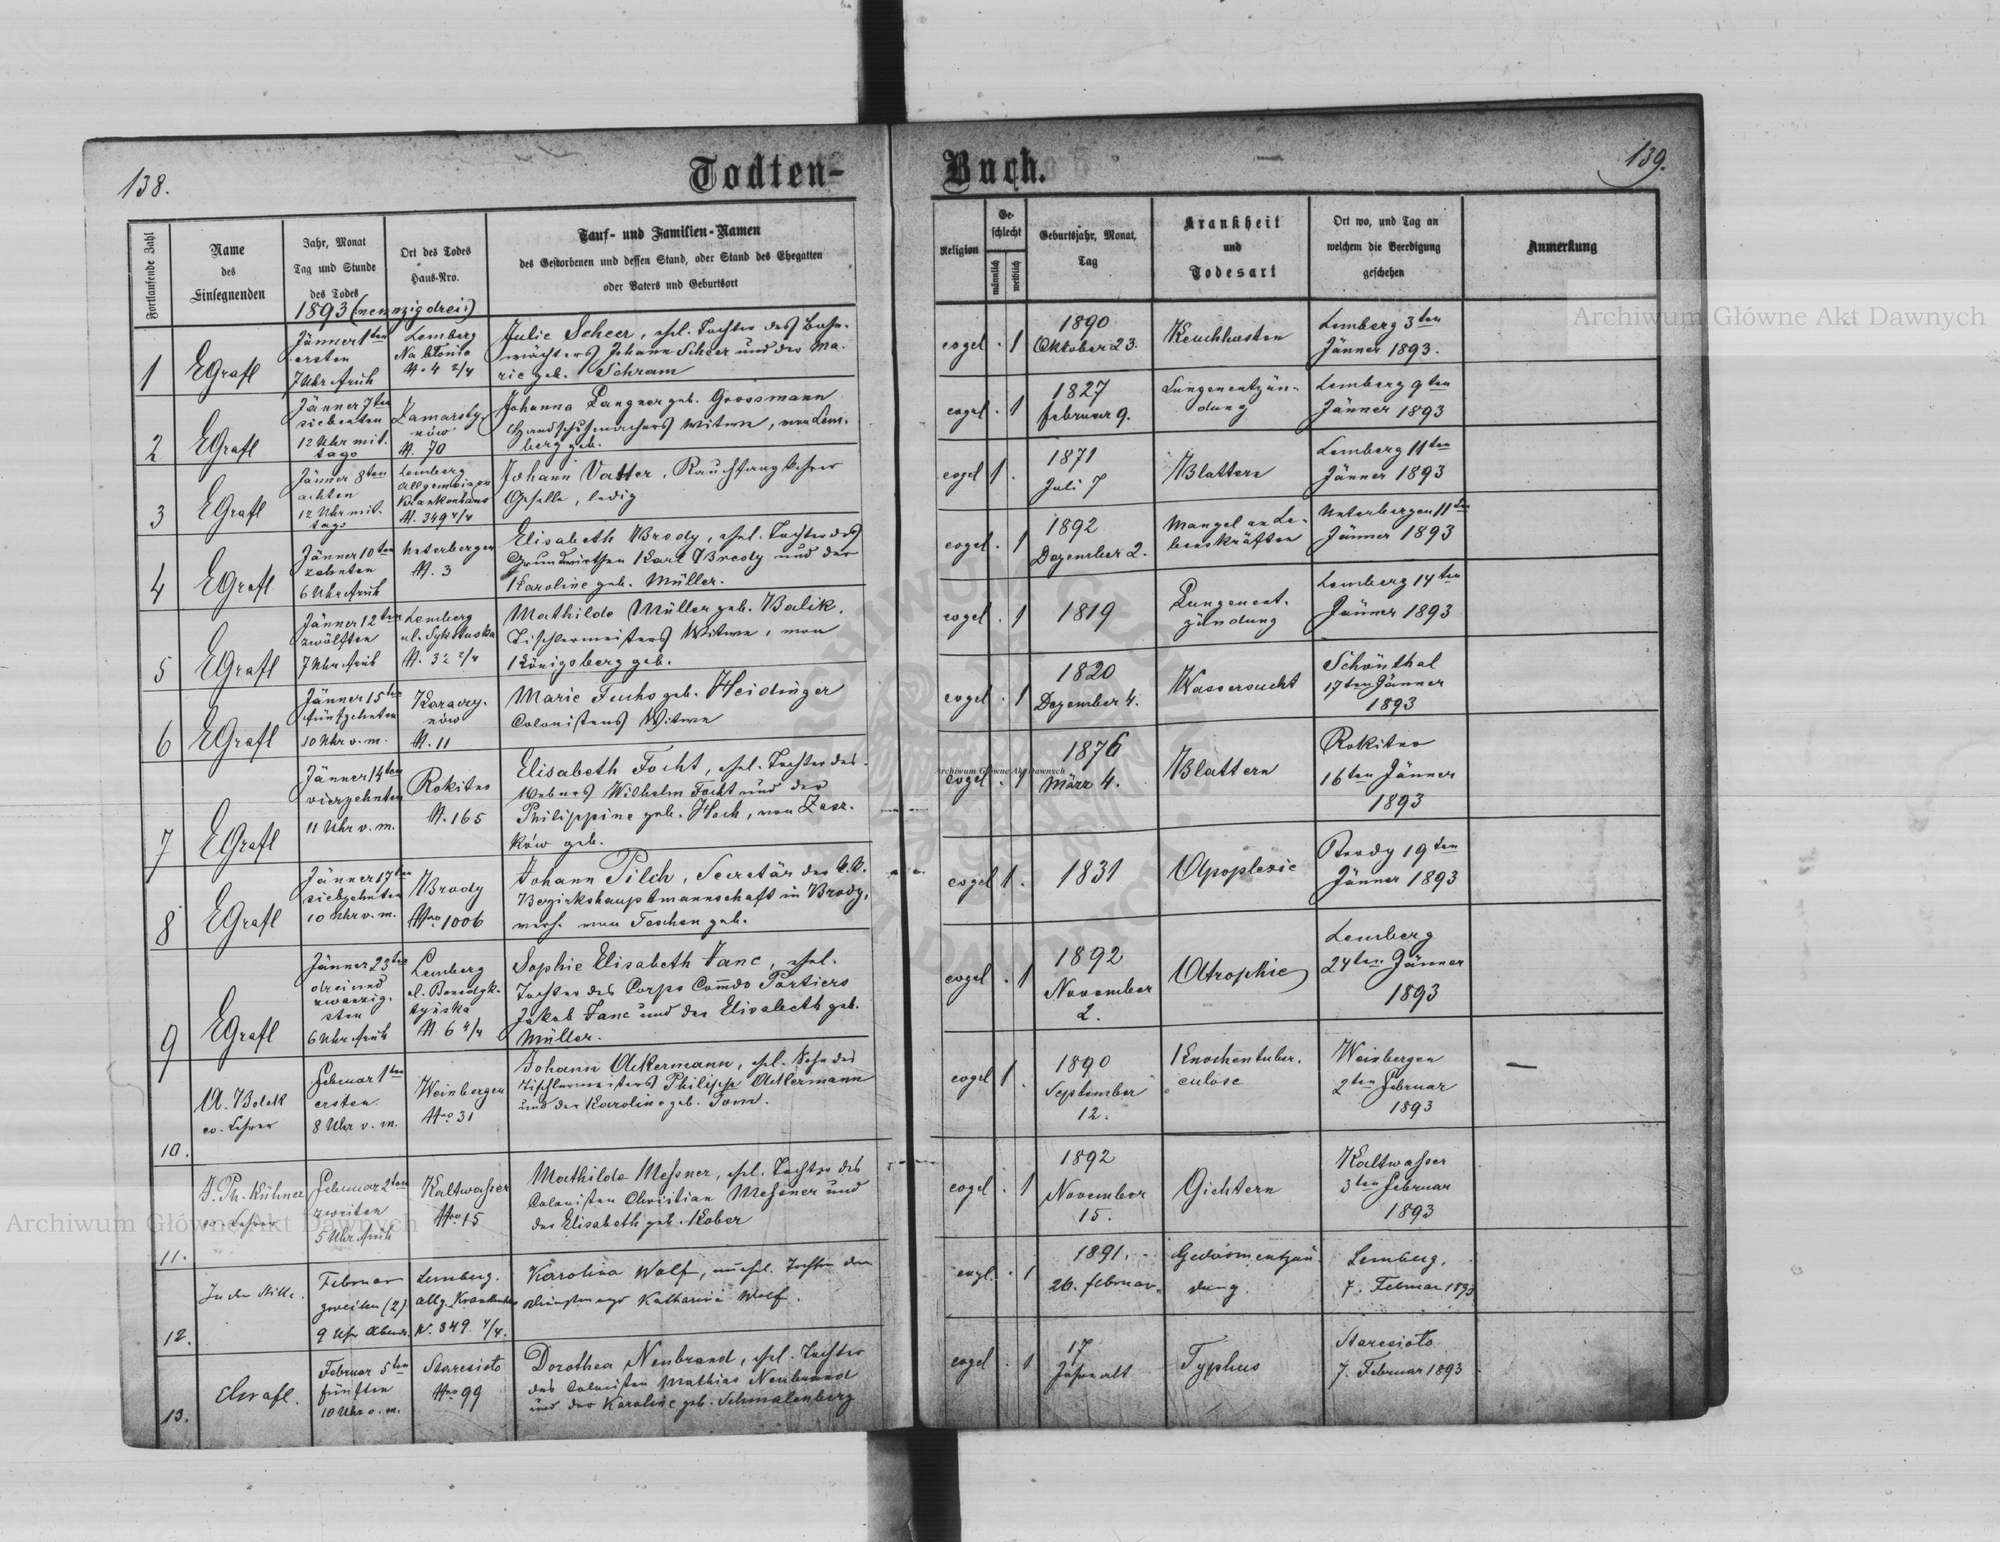 138.
Todten-
Fortlaufende Zahl
Name
des
Einsegnenden
Jahr, Monat
Tag und Stunde
des Todes
Ort des Todes
Haus-Nro.
Tauf- und Familien-Namen
des Gestorbenen und dessen Stand, oder Stand des Ehegatten
oder Vaters und Geburtsort
1893 (neunzigdrei)
1
EGrafl
Jänner 1ten
ersten
7 Uhr früh
Lemberg
Na błonie
N. 4 2/4
Julie Scheer, ehel. Tochter des Bahn-
wächters Johann Scheer und der Ma-
rie geb. Schram
2
EGrafl
Jänner 7ten
siebenten
12 Uhr mit-
tags
Zamarsty-
nów
N. 70
Johanna Langner geb. Grossmann
Handschuhmachers Witwe, von Lem-
berg geb.
3
EGrafl
Jänner 8ten
achten
12 Uhr mit-
tags
Lemberg
Allgemeines
Krankenhaus
N. 349 4/4
Johann Vatter, Rauchfangkehrer
Geselle, ledig
4
EGrafl
Jänner 10ten
zehnten
6 Uhr früh
Unterbergen
N. 3
Elisabeth Brody, ehel. Tochter des
Grundwirthen Karl Brody und der
Karoline geb. Müller.
5
EGrafl
Jänner 12ten
zwölften
7 Uhr früh
Lemberg
ul. Sykstuska
N. 32 2/4
Mathilde Müller geb. Balik,
Tischlermeisters Witwe, von
Königsberg geb.
6
EGrafl
Jänner 15ten
fünfzehnten
10 Uhr v. m.
Karaczy-
nów
N. 11
Marie Fuchs geb. Heidinger
Colonistens Witwe
7
EGrafl
Jänner 14ten
vierzehnten
11 Uhr v. m.
Rokitno
N. 165
Elisabeth Focht, ehel. Tochter des
Webers Wilhelm Focht und der
Philippine geb. Hoch, von Zasz-
ków geb.
8
EGrafl
Jänner 17ten
siebzehnten
10 Uhr v. m.
Brody
Nro. 1006
Johann Pilch, Secretär der k.k.
Bezirkshauptmannschaft in Brody,
verh. von Teschen geb.
9
EGrafl
Jänner 23ten
drei und
zwanzig-
sten
6 Uhr früh
Lemberg
ul. Benedyk-
tyńska
N. 6 4/4
Sophie Elisabeth Janc, ehel.
Tochter des Corps Commdo Portiers
Jakob Janc und der Elisabeth geb.
Müller.
10.
A. Bolek
ev. Lehrer
Februar 1ten
ersten
8 Uhr v. m.
Weinbergen
Nro 31
Johann Ackermann, ehel. Sohn des
Tischlermeisters Philipp Ackermann
und der Karoline geb. Tom.
11.
J. Ph. Kühner
ev. Lehrer
Februar 2ten
zweiten
5 Uhr früh
Kaltwasser
Nro 15
Mathilde Messner, ehel. Tochter des
Colonisten Christian Messner und
der Elisabeth geb. Kober
12.
In der Stille.
Februar
zweiten (2)
9 Uhr Abends
Lemberg.
allg. Krankenhaus
N. 349 4/4.
Karolina Wolf, unehel. Tochter der
Dienstmagd Katharina Wolf.
13.
EGrafl.
Februar 5ten
fünften
10 Uhr v. m.
Staresioło
Nro 99
Dorothea Neubrand, ehel. Tochter
des Colonisten Mathias Neubrand
und der Karoline geb. Schmalenberg
Buch.
139.
Religion
Ge-
schlecht
männlich
weiblich
Geburtsjahr, Monat,
Tag
Krankheit
und
Todesart
Ort wo, und Tag an
welchem die Beerdigung
geschehen
Anmerkung
evgel . 1
1890
Oktober 23.
Keuchhusten
Lemberg 3ten
Jänner 1893.
evgel. . 1
1827
Februar 9.
Lungenentzün-
dung
Lemberg 9ten
Jänner 1893
evgel 1 .
1871
Juli 7
Blattern
Lemberg 11ten
Jänner 1893
evgel. . 1
1892
Dezember 2.
Mangel an Le-
benskräften
Unterbergen 11ten
Jänner 1893
evgel. . 1
1819
Lungenent-
zündung
Lemberg 14ten
Jänner 1893
evgel. . 1
1820
Dezember 4.
Wassersucht
Schönthal
17ten Jänner
1893
evgel. . 1
1876
März 4.
Blattern
Rokitno
16ten Jänner
1893
evgel 1 .
1831
Apoplexie
Brody 19ten
Jänner 1893
evgel . 1
1892
November
2.
Atrophie
Lemberg
24ten Jänner
1893
evgel 1 .
1890
September
12.
Knochentuber-
culose
Weinbergen
2ten Februar
1893
evgel . 1
1892
November
15.
Gichtern
Kaltwasser
3ten Februar
1893
evgl. . 1
1891.
26. Februar.
Gedärmentzün-
dung.
Lemberg,
7. Februar 1893
evgel . 1
17
Jahre alt
Typhus
Staresioło
7. Februar 1893
Archiwum Główne Akt Dawnych
Archiwum Główne Akt Dawnych
Archiwum Główne Akt Dawnych